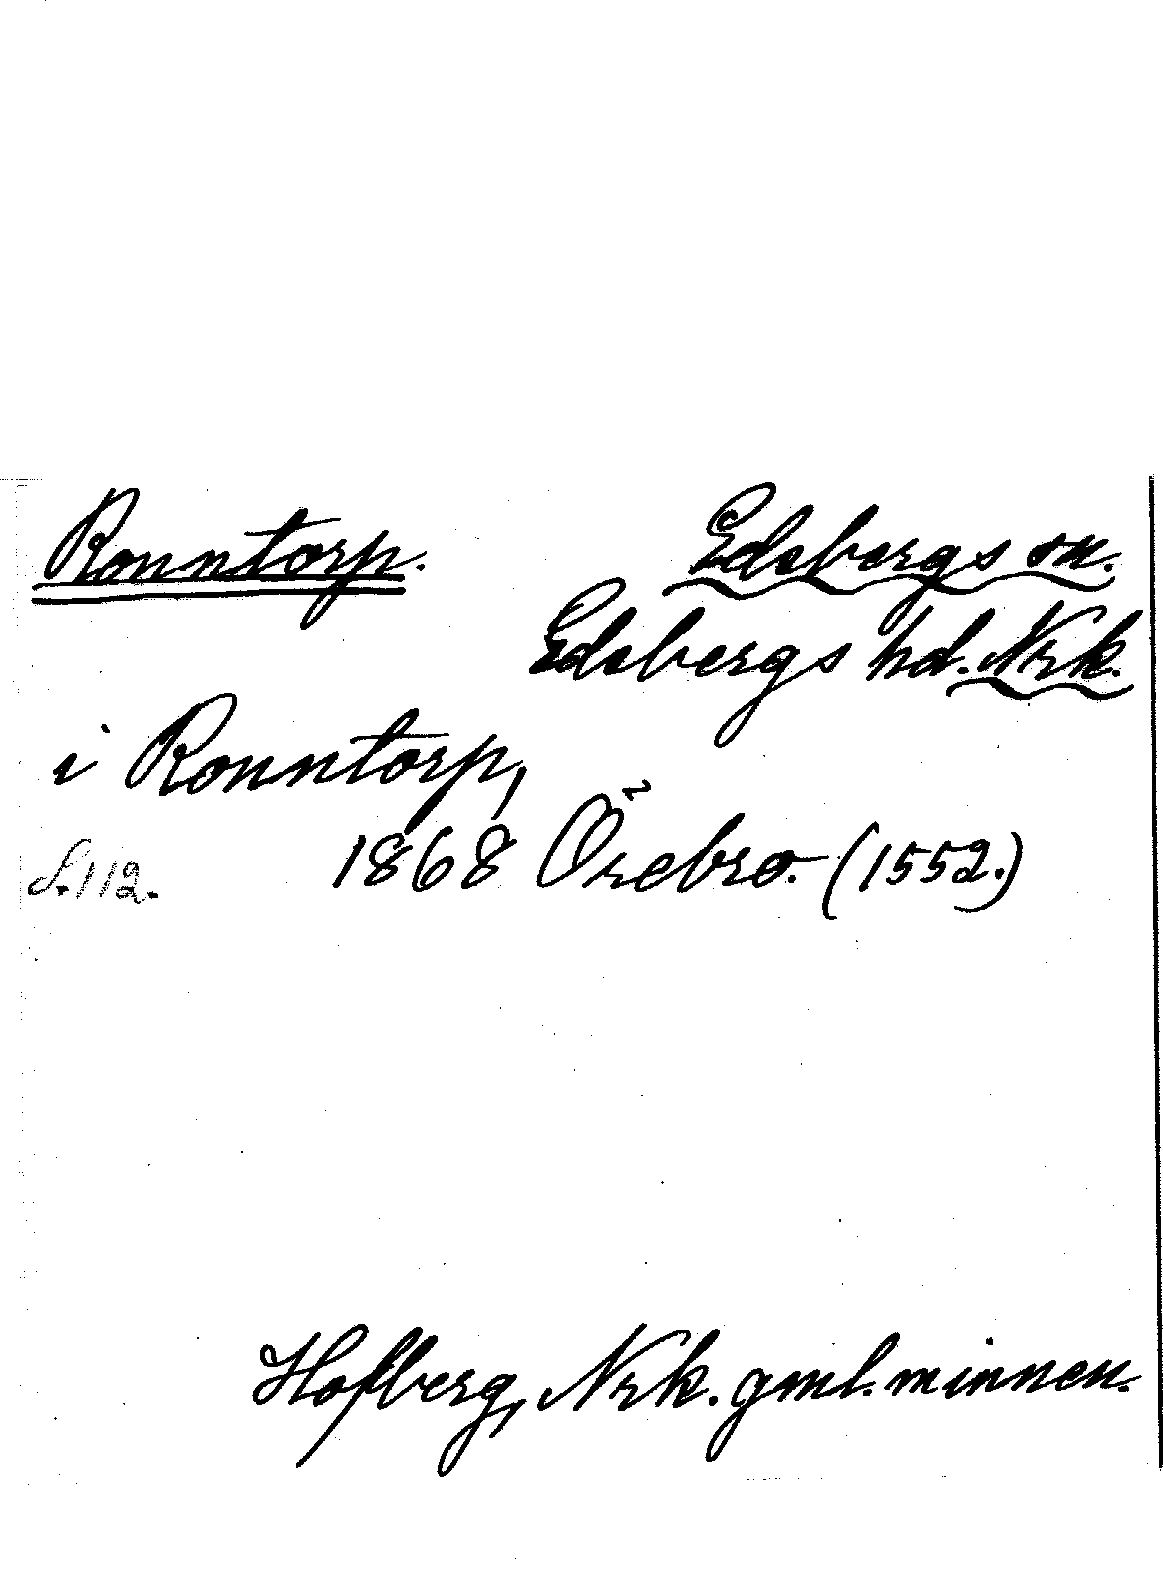 Ronntorp. Edsbergs sn.
Edsbergs hd. Nrk.
i Ronntorp,
S. 112. 1868 Örebro. (1552.)
Hofberg, Nrk. gml. minnen.